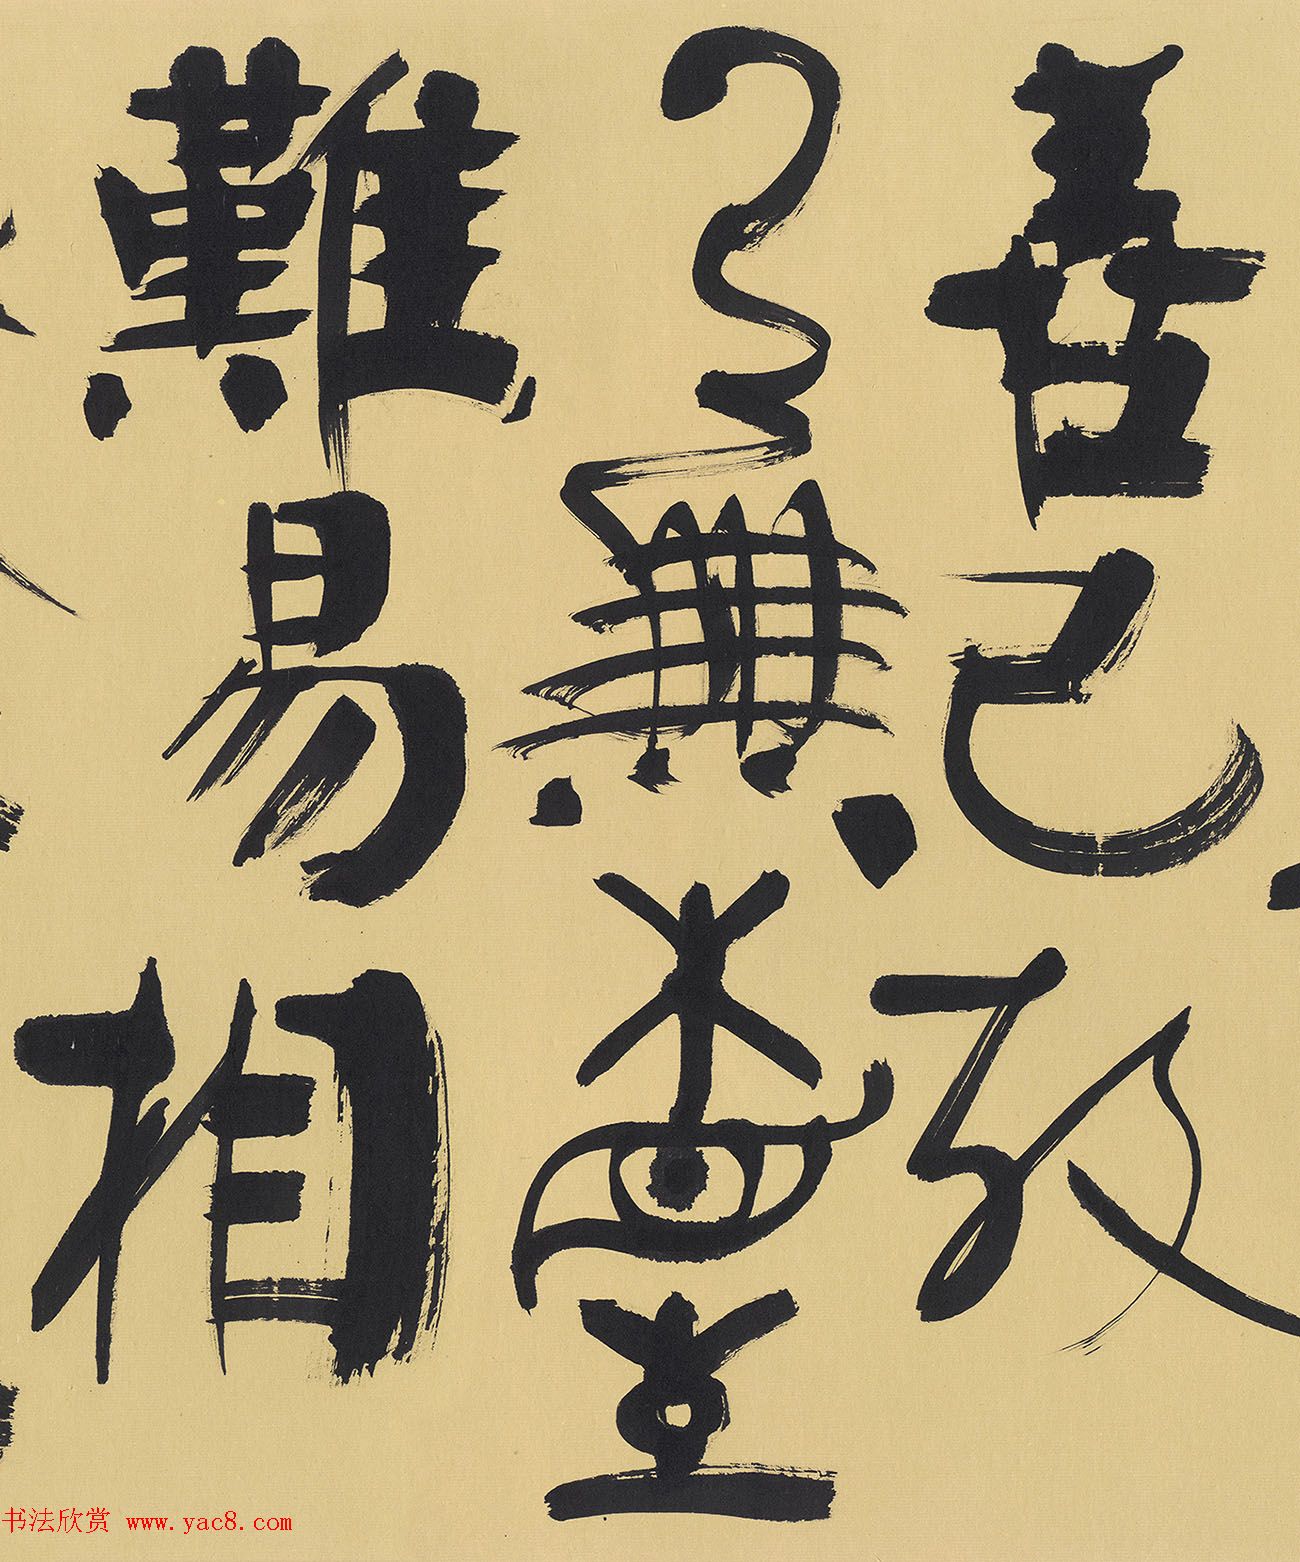 善已故
有無相生
難易相
书法欣赏 www.yac8.com